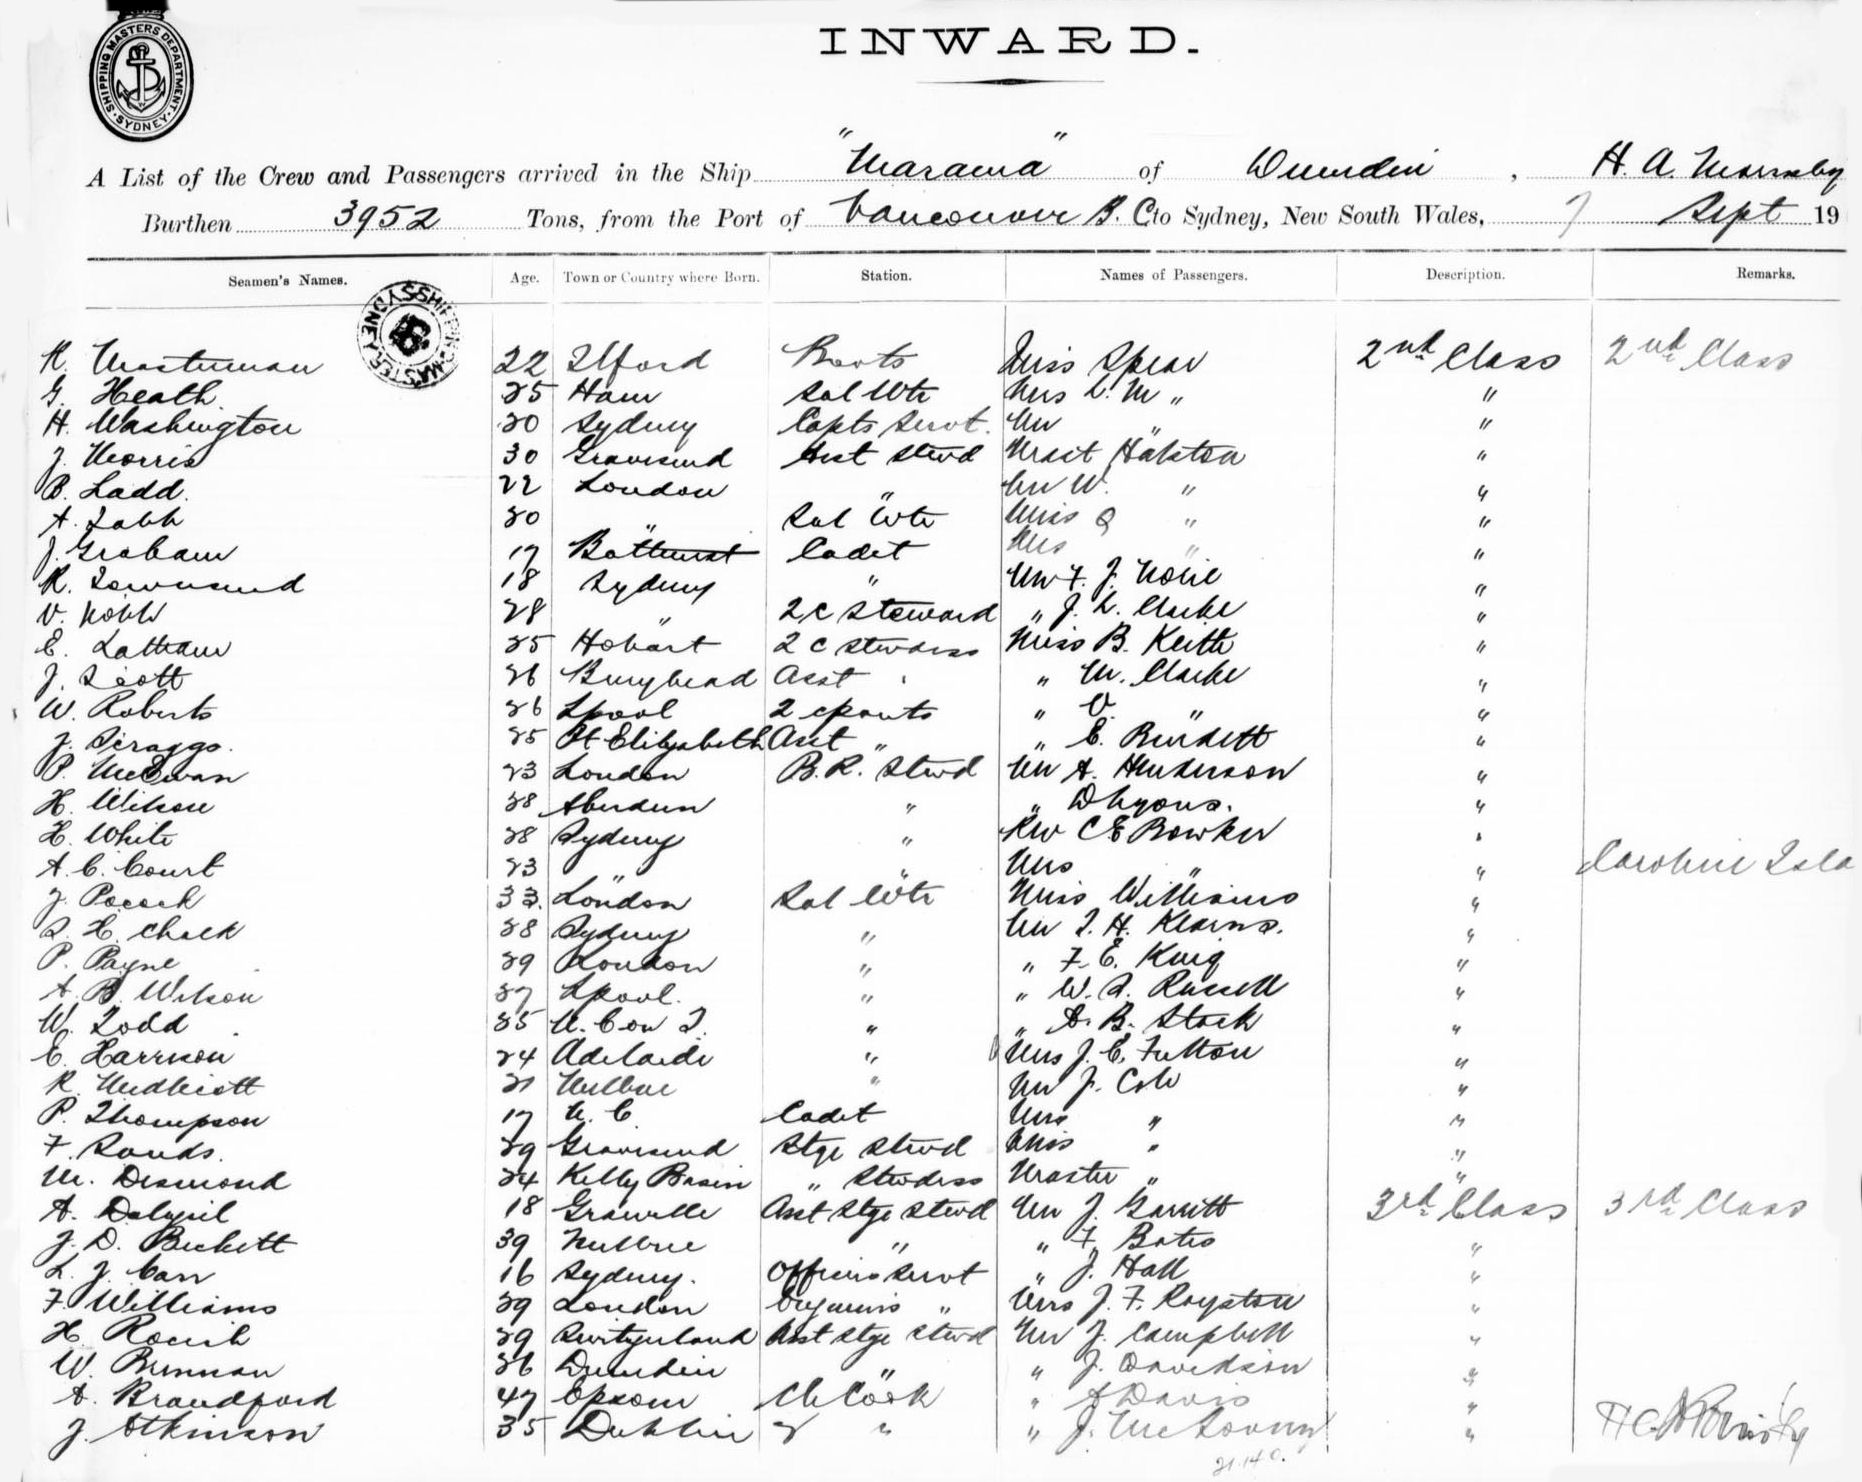 SHIPPING MASTERS DEPARTMENT
SYDNEY
INWARD.
A List of the Crew and Passengers arrived in the Ship "Marama" of Dunedin, H. A. Mornsby
Burthen 3952 Tons, from the Port of Vancouver B. C to Sydney, New South Wales, 7 Sept 19
Seamen's Names. Age. Town or Country where Born. Station. Names of Passengers. Description. Remarks.
SHIPPING MASTER SYDNEY
R. Masterman 22 Ilford Boots Miss Spear 2nd Class 2nd Class
G. Heath 25 Ham Sal Wtr Mrs L. M " "
H. Washington 20 Sydney Capts Servt. Mr " "
J. Morris 30 Gravesend Asst Stwd Mrast Halston "
B. Ladd. 22 London " Mr W. " "
A. 20 " Sal Wtr Miss " "
J. Graham 17 Bathurst Cadet Mrs " "
R. Townsend 18 Sydney " Mr F. J. "
V. 28 " 2 C Steward " J. L. Clarke "
E. Latham 25 Hobart 2 C Stwdess Miss B. Keith "
J. Scott 26 Burghead Asst " M. Clarke "
W. Roberts 26 Lpool 2 C " V. " "
J. Scraggs. 25 Pt Elizabeth Asst " " E. Burdett "
P. McEwan 23 London B. R. Stwd Mr A. Henderson "
H. Wilson 28 Aberdeen " " D Lyons. "
H. White 28 Sydney " Rev C E Bowker "
A. C. Court 23 " " Mrs " " Caroline Isla
J. Pocock 33. London Sal Wtr Miss Williams "
S. H. Chalk 28 Sydney " Mr T. H. Kearns. "
P. Payne 29 London " " F. E. King "
A. B. Wilson 27 Lpool. " " W. S. Russell "
W. Todd 25 N. C on T. " " A. B. Stock "
E. Harrison 24 Adelaide " Mrs J. C. Fulton "
R. Medlicott 21 Melbne " Mr J. Cole "
P. Thompson 17 N. C Cadet Mrs " "
F. Sands. 29 Gravesend Stge Stwd Miss " "
M. Desmond 24 Kelly Basin " Stwdess Master " "
A. Dalziel 18 Granville Asst Stge Stwd Mr J. Garritt 3rd Class 3rd Class
J. D. Beckett 39 Melbne " " F. Bates "
L. J. Carr 16 Sydney. Officers Servt " J. Hall "
F. Williams 29 London Engineers " Mrs J. F. Royston "
H. 29 Switzerland Asst Stge Stwd Mr J. Campbell "
W. Brennan 26 Dunedin " " J. Davidson "
A. Brandford 47 Epsom Ch Cook " A Davis "
J. Atkinson 35 Dublin 2 " " J. "
21.14.0.